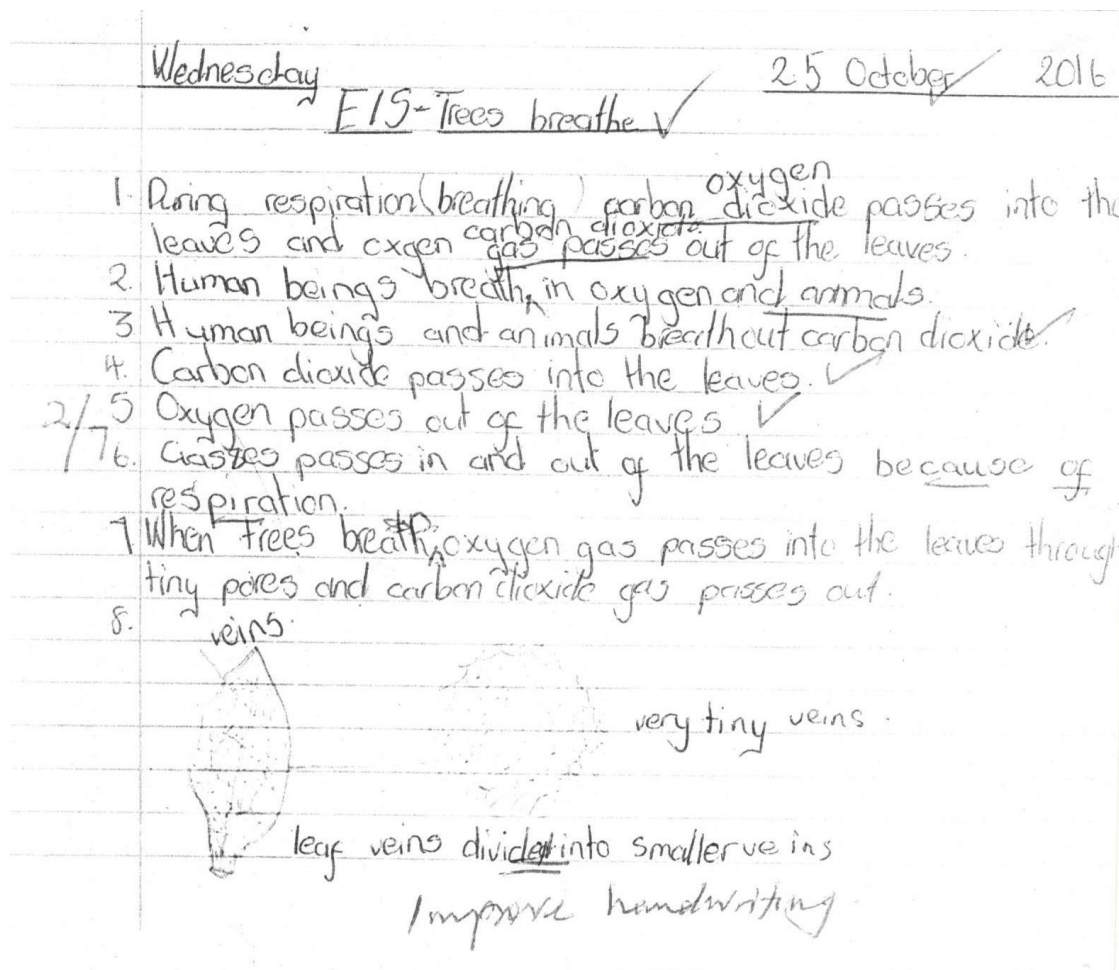 Wednesday 25 October 2016
EIS-Trees breathe ✓
oxygen
1. During respiration (breathing) carbon dioxide passes into the
carbon dioxide
leaves and oxgen gas passes out of the leaves.
2. Human beings breath in oxygen and animals.
3 Human beings and animals breath out carbon dioxide.
4. Carbon dioxide passes into the leaves.
5 Oxygen passes out of the leaves
2/7
6. Gasses passes in and out of the leaves because of
respiration.
7 When Trees breath oxygen gas passes into the leaves through
tiny pores and carbon dioxide gas passes out.
8. veins.
very tiny veins.
leaf veins divided into smaller veins
Improve handwriting